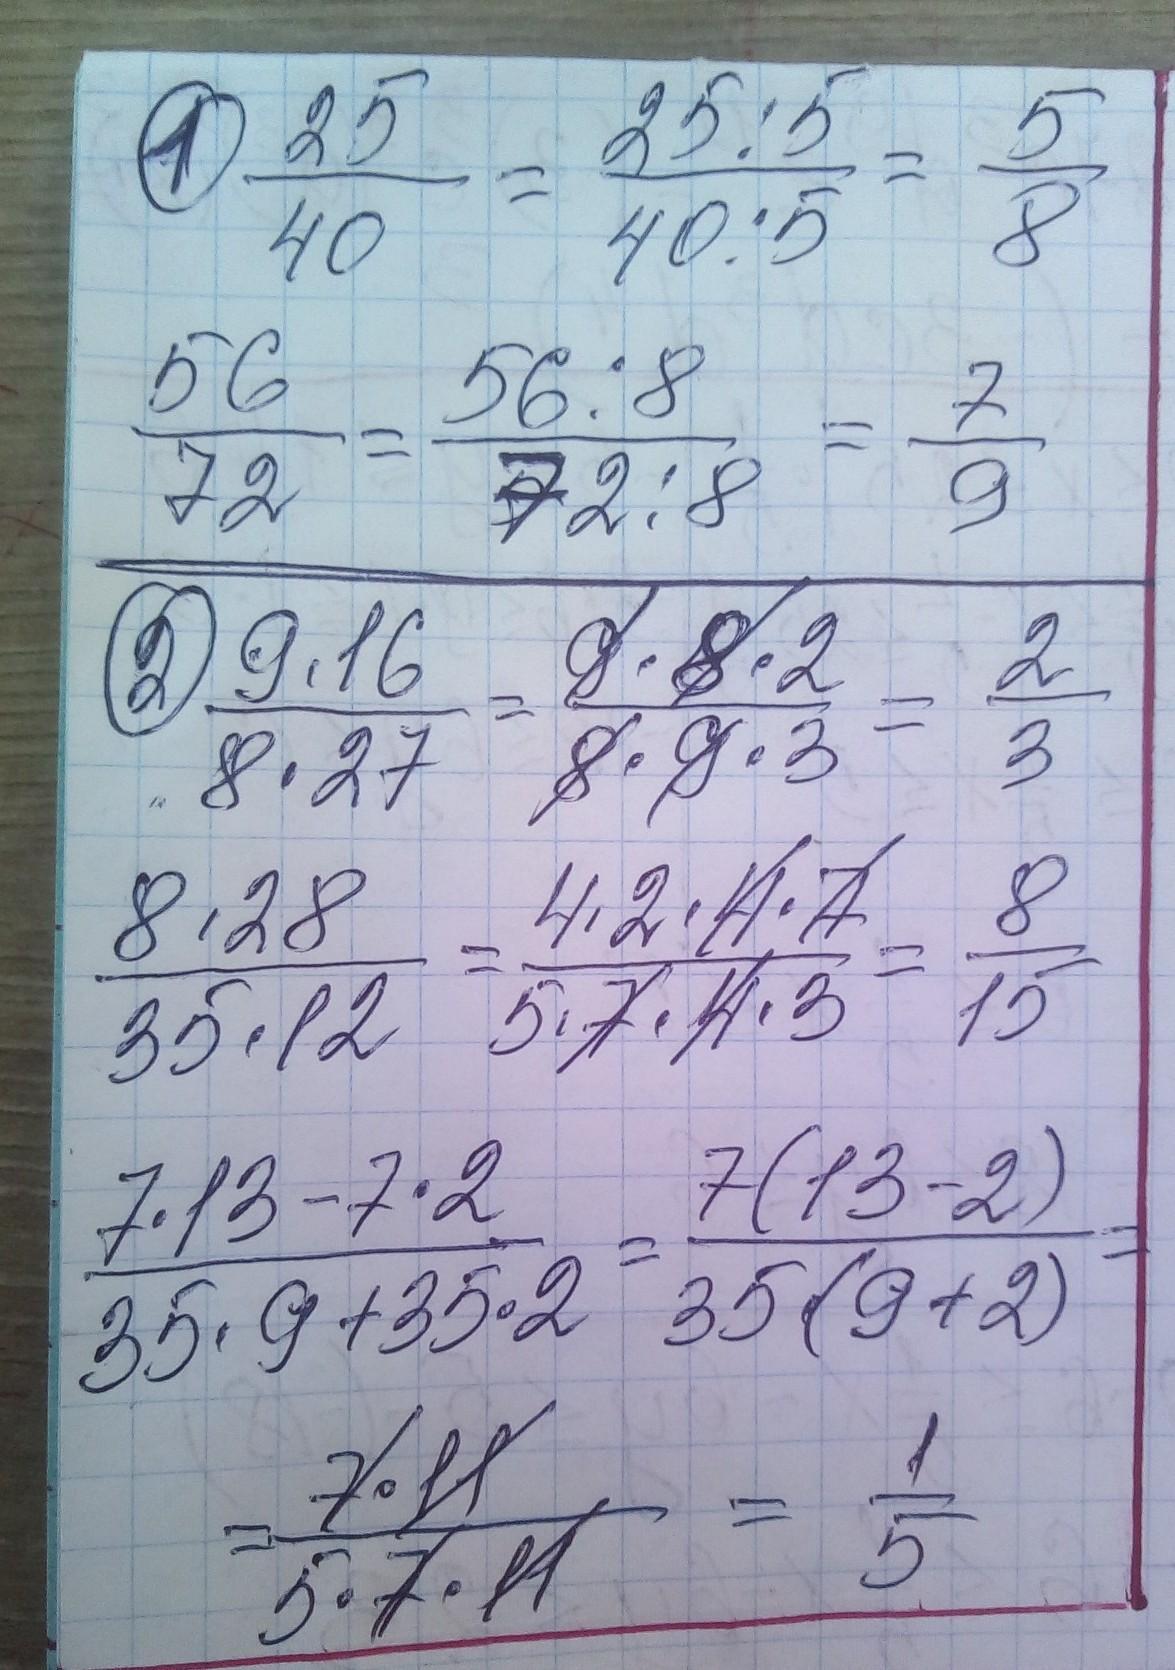 ① 25/40 = 25:5/40:5 = 5/8
56/72 = 56:8/72:8 = 7/9
② 9·16/8·27 = 9·8·2/8·9·3 = 2/3
8·28/35·12 = 4·2·4·7/5·7·4·3 = 8/15
7·13-7·2/35·9+35·2 = 7(13-2)/35·(9+2) =
= 7·11/5·7·11 = 1/5